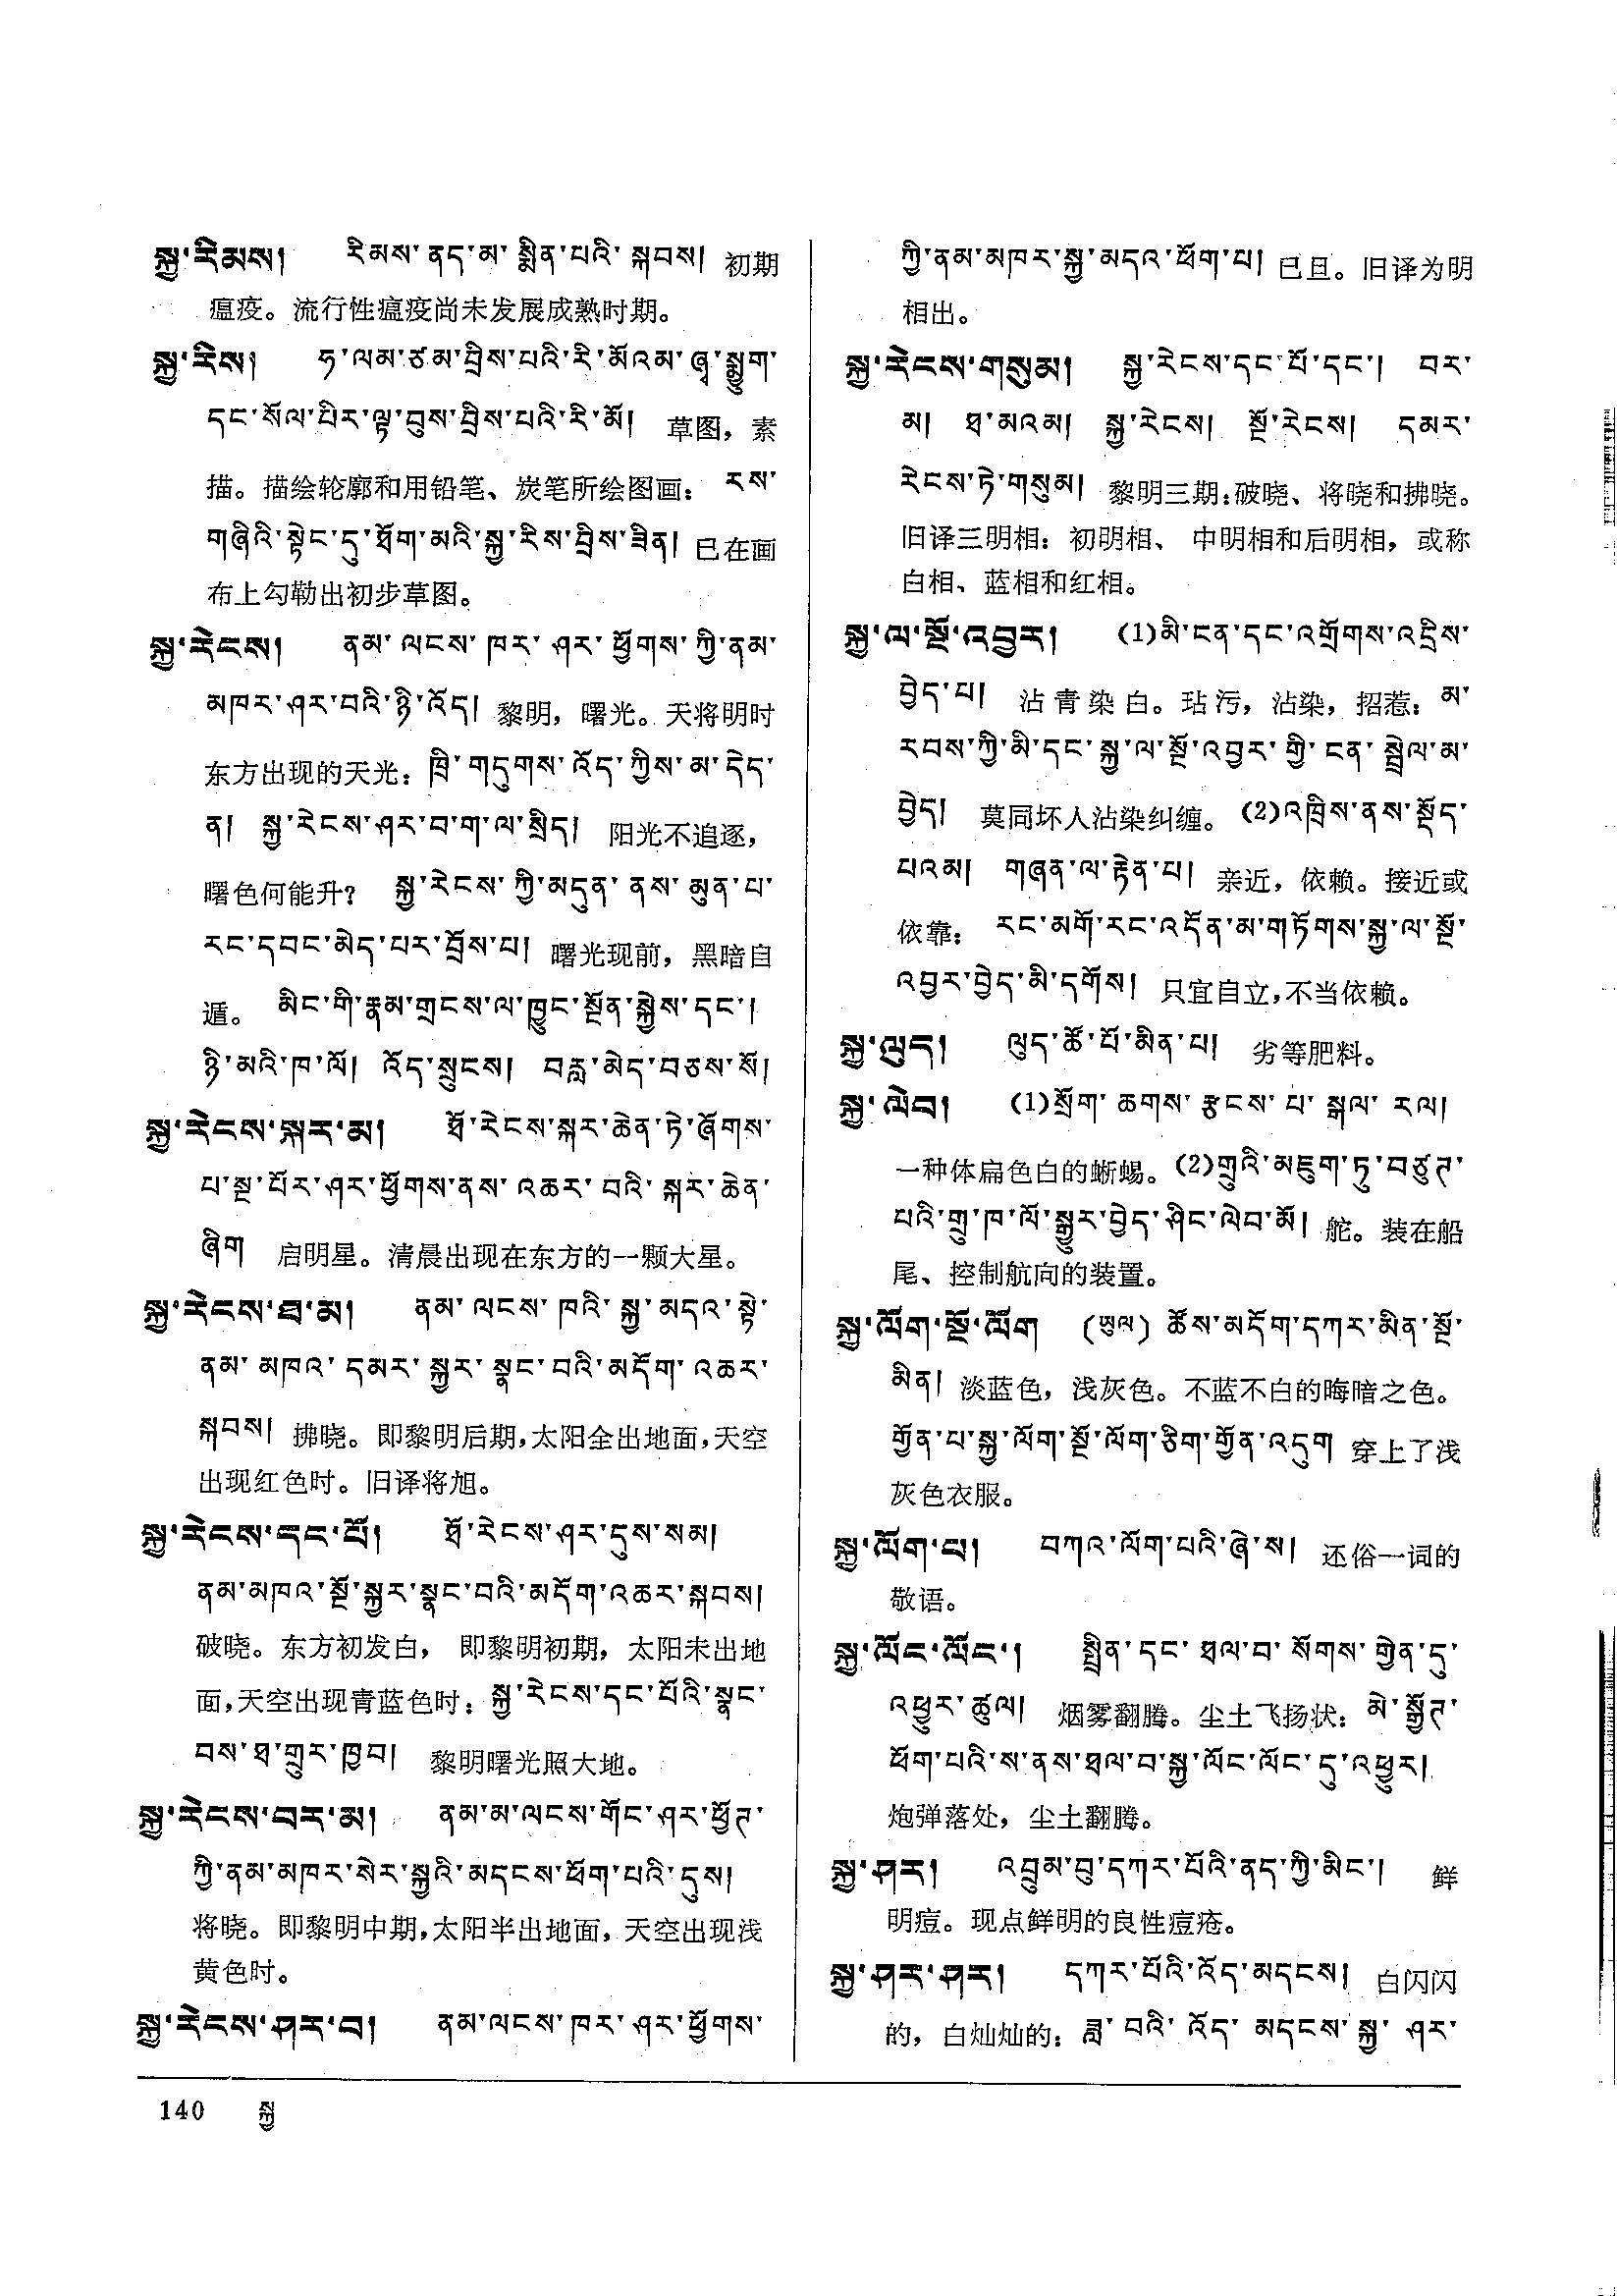 སྐྱ་རིམས།  རིམས་ནད་མ་སྨིན་པའི་སྐབས། 初期
瘟疫。流行性瘟疫尚未发展成熟时期。
སྐྱ་རིས།  ཧ་ལམ་ཙམ་བྲིས་པའི་རི་མོའམ་ཞྭ་སྨྱུག་
དང་སོལ་པིར་ལྟ་བུས་བྲིས་པའི་རི་མོ། 草图，素
描。描绘轮廓和用铅笔、炭笔所绘图画： རས་
གཞིའི་སྟེང་དུ་ཐོག་མའི་སྐྱ་རིས་བྲིས་ཟིན། 已在画
布上勾勒出初步草图。
སྐྱ་རེངས།  ནམ་ལངས་ཁར་ཤར་ཕྱོགས་ཀྱི་ནམ་
མཁར་ཤར་བའི་ཉི་འོད། 黎明，曙光。天将明时
东方出现的天光：ཁྲི་གདུགས་འོད་ཀྱིས་མ་དེད་
ན། སྐྱ་རེངས་ཤར་བ་ག་ལ་སྲིད། 阳光不追逐，
曙色何能升？ སྐྱ་རེངས་ཀྱི་མདུན་ནས་མུན་པ་
རང་དབང་མེད་པར་བྲོས་པ། 曙光现前，黑暗自
遁。 མིང་གི་རྣམ་གྲངས་ལ་ཁྱུང་སྔོན་སྐྱེས་དང་།
ཉི་མའི་ཁ་ལོ། འོད་སྲུངས། བརླ་མེད་བཅས་སོ།
སྐྱ་རེངས་སྐར་མ།  ཐོ་རེངས་སྐར་ཆེན་ཏེ་ཞོགས་
པ་སྔ་པོར་ཤར་ཕྱོགས་ནས་འཆར་བའི་སྐར་ཆེན་
ཞིག 启明星。清晨出现在东方的一颗大星。
སྐྱ་རེངས་ཐ་མ།  ནམ་ལངས་ཁའི་སྐྱ་མདའ་སྟེ་
ནམ་མཁའ་དམར་སྐྱར་སྣང་བའི་མདོག་འཆར་
སྐབས། 拂晓。即黎明后期，太阳全出地面，天空
出现红色时。旧译将旭。
སྐྱ་རེངས་དང་པོ།  ཐོ་རེངས་ཤར་དུས་སམ།
ནམ་མཁའ་སྔོ་སྐྱར་སྣང་བའི་མདོག་འཆར་སྐབས།
破晓。东方初发白， 即黎明初期，太阳未出地
面，天空出现青蓝色时：སྐྱ་རེངས་དང་པོའི་སྣང་
བས་ཐ་གྲུར་ཁྱབ། 黎明曙光照大地。
སྐྱ་རེངས་བར་མ།  ནམ་མ་ལངས་གོང་ཤར་ཕྱོཊ་
ཀྱི་ནམ་མཁར་སེར་སྐྱའི་མདངས་ཕོག་པའི་དུས།
将晓。即黎明中期，太阳半出地面，天空出现浅
黄色时。
སྐྱ་རེངས་ཤར་བ།  ནམ་ལངས་ཁར་ཤར་ཕྱོགས་
ཀྱི་ནམ་མཁར་སྐྱ་མདའ་ཕོག་པ། 已旦。旧译为明
相出。
སྐྱ་རེངས་གསུམ།  སྐྱ་རེངས་དང་པོ་དང་། བར་
མ། ཐ་མའམ། སྐྱ་རེངས། སྔོ་རེངས། དམར་
རེངས་ཏེ་གསུམ། 黎明三期：破晓、将晓和拂晓。
旧译三明相：初明相、 中明相和后明相，或称
白相、蓝相和红相。
སྐྱ་ལ་སྔོ་འབྱར།  (1)མི་ངན་དང་འགྲོགས་འདྲིས་
བྱེད་པ། 沾青染白。玷污，沾染，招惹：མ་
རབས་ཀྱི་མི་དང་སྐྱ་ལ་སྔོ་འབྱར་གྱི་ངན་སྦྲེལ་མ་
བྱེད། 莫同坏人沾染纠缠。(2)འཁྲིས་ནས་སྡོད་
པའམ། གཞན་ལ་རྟེན་པ། 亲近，依赖。接近或
依靠： རང་མགོ་རང་འདོན་མ་གཏོགས་སྐྱ་ལ་སྔོ་
འབྱར་བྱེད་མི་དགོས། 只宜自立，不当依赖。
སྐྱ་ལུད།  ལུད་ཚོ་པོ་མིན་པ། 劣等肥料。
སྐྱ་ལེབ།  (1)སྲོག་ཆགས་རྩངས་པ་སྒལ་རལ།
一种体扁色白的蜥蜴。(2)གྲུའི་མཇུག་ཏུ་བཙུཊ་
པའི་གྲུ་ཁ་ལོ་སྒྱུར་བྱེད་ཤིང་ལེབ་མོ། 舵。装在船
尾、控制航向的装置。
སྐྱ་ལོག་སྔོ་ལོག  (ཡུལ) ཚོས་མདོག་དཀར་མིན་སྔོ་
མིན། 淡蓝色，浅灰色。不蓝不白的晦暗之色。
གྱོན་པ་སྐྱ་ལོག་སྔོ་ལོག་ཅིག་གྱོན་འདུག 穿上了浅
灰色衣服。
སྐྱ་ལོག་པ།  བཀའ་ལོག་པའི་ཞེ་ས། 还俗一词的
敬语。
སྐྱ་ལོང་ལོང་།  སྤྲིན་དང་ཐལ་བ་སོགས་གྱེན་དུ་
འཕྱུར་ཚུལ། 烟雾翻腾。尘土飞扬状：མེ་སྒྱོཊ་
ཕོག་པའི་ས་ནས་ཐལ་བ་སྐྱ་ལོང་ལོང་དུ་འཕྱུར།
炮弹落处，尘土翻腾。
སྐྱ་ཤར།  འབྲུམ་བུ་དཀར་པོའི་ནད་ཀྱི་མིང་། 鲜
明痘。现点鲜明的良性痘疮。
སྐྱ་ཤར་ཤར།  དཀར་པོའི་འོད་མདངས། 白闪闪
的，白灿灿的：ཟླ་བའི་འོད་མདངས་སྐྱ་ཤར་
140 སྐྱ